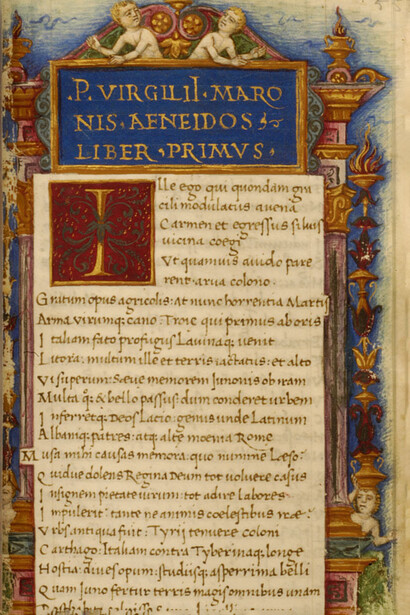 .P. VIRGILII. MARO
NIS. AENEIDOS
LIBER. PRIMVS.
Ille ego qui quondam gra
cili modulatus auena
Carmen et egressus siluis
uicina coegi
Vt quamuis auido pare
rent arua colono.
Gratum opus agricolis: At nunc horrentia Martis
Arma Virumq; cano: Troie qui primus ab oris
Italiam fato profugus Lauinaq; uenit
Litora: multum ille et terris iactatus: et alto
Vi superum: Saeuę memorem Iunonis ob iram
Multa q; & bello passus: dum conderet urbem
Inferretq; Deos Lacio: genus unde Latinum
Albaniq; patres: atq; altę moenia Rome
Musa mihi causas memora: quo numine Laeso:
Quidue dolens Regina Deum tot voluere casus
Insignem pietate uirum: tot adire Labores
Impulerit: tantę ne animis coelestibus irae
Vrbs antiqua fuit: Tyrij tenuere coloni
Carthago: Italiam contra Tyberinaq; longe
Hostia: diues opum: studiisq; asperrima belli
Quam Iuno fertur terris magis omnibus unam